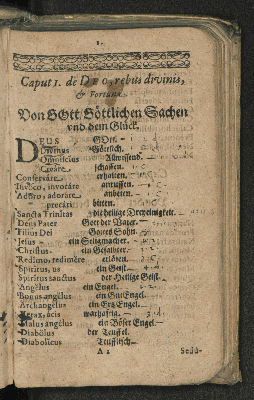 1.
Caput 1. de DEO, rebus divinis,
& Fortuna.
Von GOtt, Göttlichen Sachen
vnd dem Glück.
DEUS GOtt.
Divinus Göttlich.
Omniscius Allwissend.
Creare schaffen.
Conservare erhalten.
Invoco, invocáre anruffen.
Adoro, adoráre anbeten.
precári bitten.
Sancta Trinitas die heilige Dreyeinigkeit.
Deus Pater Gott der Vater.
Filius Dei Gottes Sohn.
Jesus ein Seligmacher.
Christus ein Gesalbter.
Redimo, redimére erlösen.
Spiritus, us ein Geist.
Spiritus sanctus der Heilige Geist.
Angélus ein Engel.
Bonus angélus ein Gut Engel.
Archangélus ein Ertz Engel.
Verax, ácis warhafftig.
Malus angélus ein Böser Engel.
Diabólus der Teuffel.
Diabolicus Teufflisch.
A 2